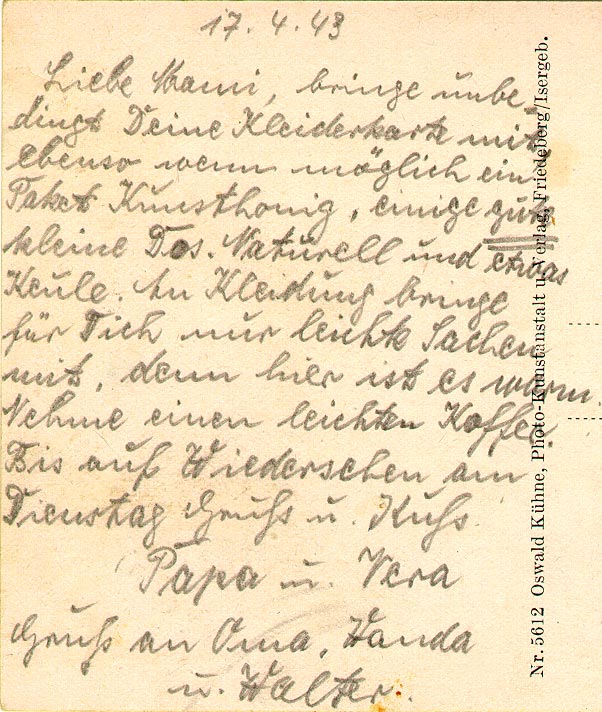 17.4.43
Liebe Mami, bringe unbe-
dingt Deine Kleiderkarte mit
ebenso wenn möglich ein
Paket Kunsthonig, einige gute
kleine Dos. Naturell und etwas
Keule. An Kleidung bringe
für Dich nur leichte Sachen
mit, denn hier ist es warm.
Nehme einen leichten Koffer.
Bis auf Wiedersehen am
Dienstag Gruß u. Kuß
Papa u. Vera
Gruß an Oma, Wanda
u. Walter.
Nr. 5612 Oswald Kühne, Photo-Kunstanstalt u. Verlag, Friedeberg/Isergeb.